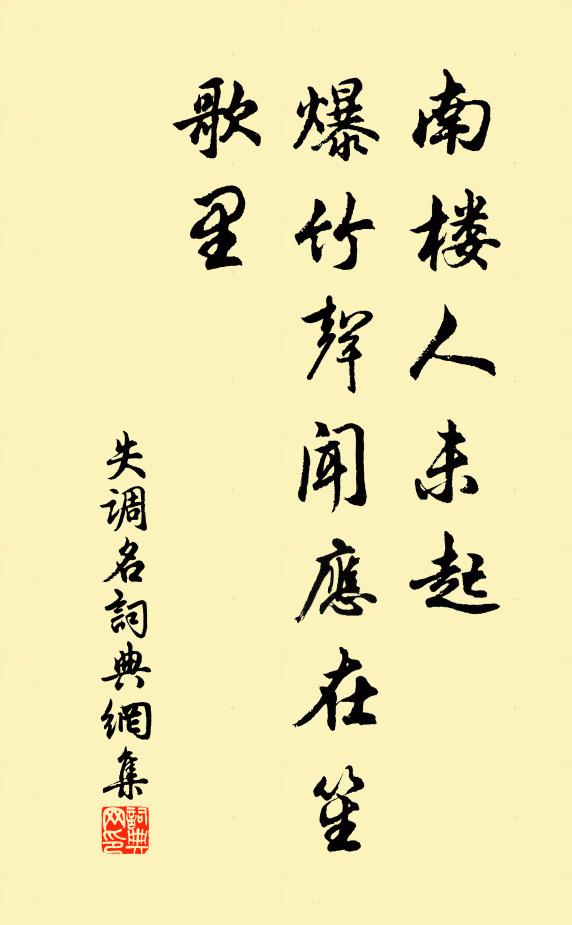 南楼人未起
爆竹聲闻應在笙
歌里
失调名詞典網集
詞典网印